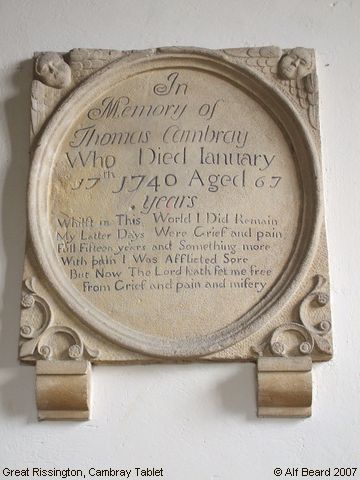 In
Memory of
Thomas Cambray
Who Died Ianuary
17th 1740 Aged 67
years
Whilſt in This World I Did Remain
My Latter Days Were Grief and pain
Full Fifteen years and Something more
With pain I Was Afflicted Sore
But Now The Lord hath ſet me free
From Grief and pain and miſery
Great Rissington, Cambray Tablet
© Alf Beard 2007